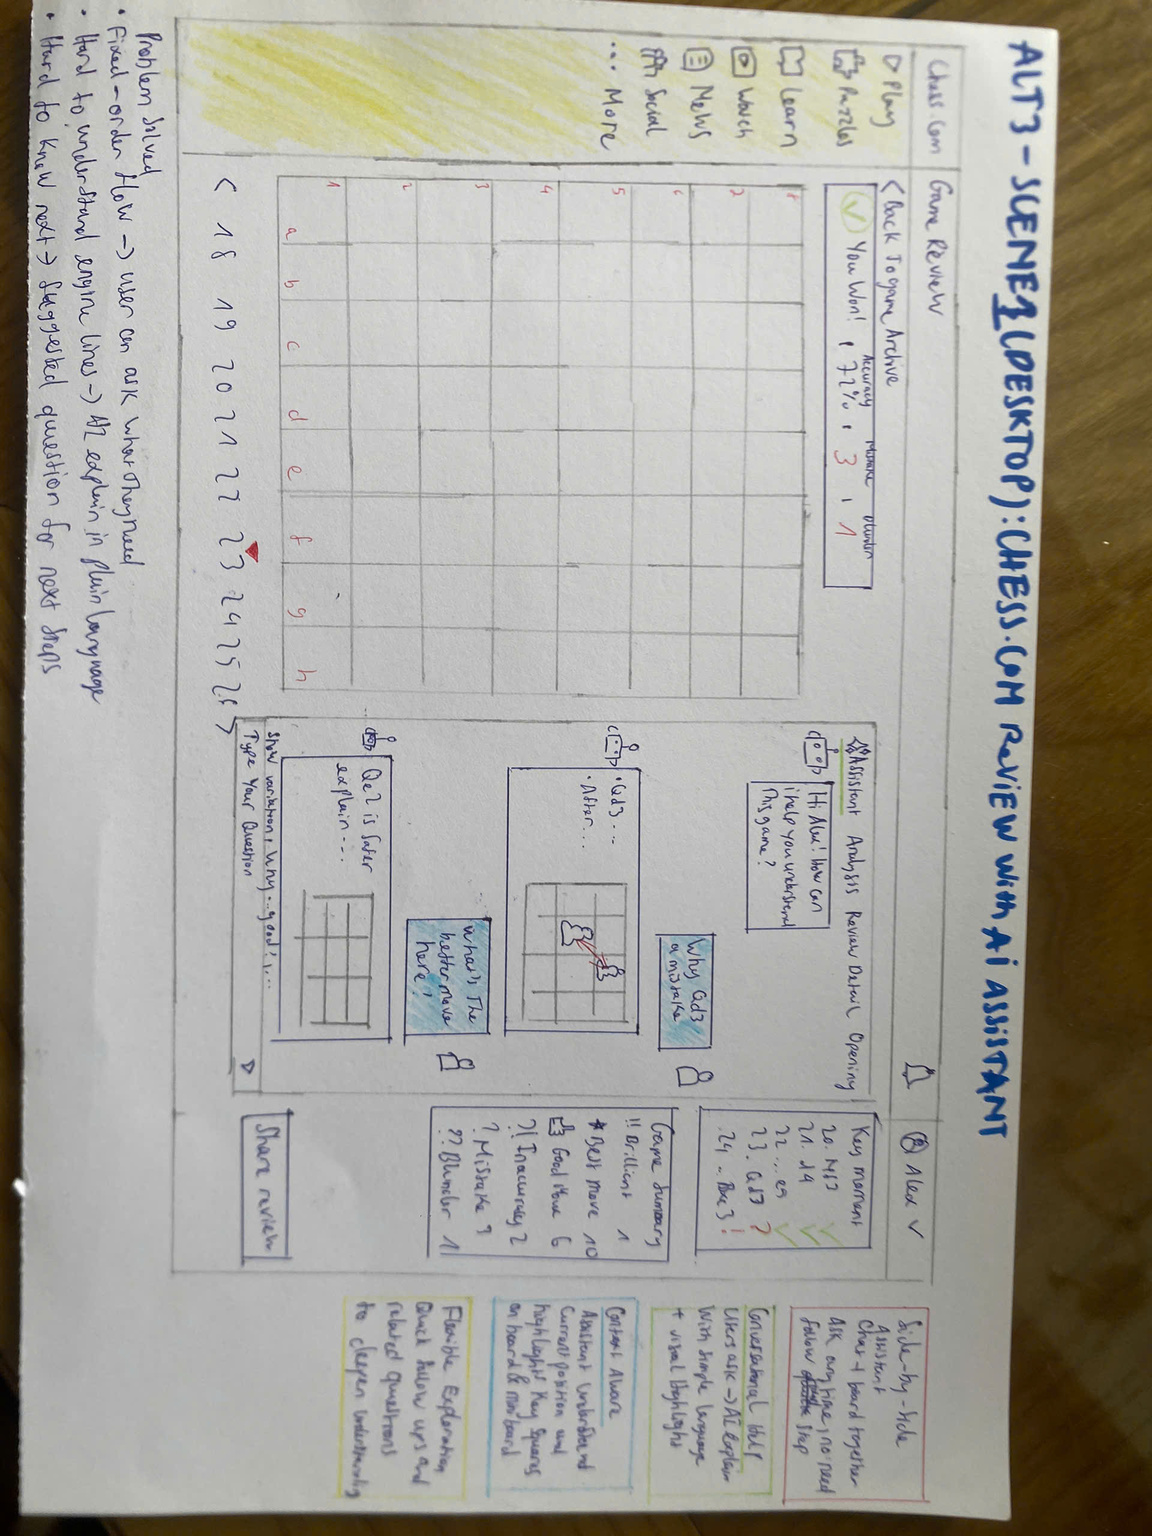 ALT3 - SCENE 1 (DESKTOP): CHESS.COM REVIEW WITH AI ASSISTANT
Chess.com
Game Review
Alex
Play
Puzzles
Learn
Watch
News
Social
... More
< Back To game Archive
Accuracy
You Won! , 72% , 3 , 1
8
7
6
5
4
3
2
1
a b c d e f g h
< 18 19 20 21 22 23 24 25 26 >
Assistant Analysis Review Detail Opening
Hi Alex! How can
i help you understand
This game?
Why Qd3
a mistake
• Qd3 ...
• After ...
What's The
better move
here?
Qe2 is safer
explain ....
Show variation, Why ... good?, ...
Type Your Question
Key moment
20. Nf3
21. d4
22 ... e5
23. Qd3 ?
24 .. Be3 !
Game Summary
!! Brillient 1
★ Best move 10
Good Move 6
?! Inaccuracy 2
? Mistake 3
?? Blunder 1
Share review
Side-by-side
Assistant
Chat + board together
Ask any time, no need
follow step
Conversational Help
Users ask -> AI explain
With simple language
+ visual Highlight
Context Aware
Assistant Understand
Current position and
highlight Key Squares
on board & mini board
Flexible Exploration
Quick follow ups and
related questions
to deepen understanding
Problem Solved
• Fixed-order flow -> user can ask what they need
• Hard to understand engine lines -> AI explain in plain language
• Hard to know next -> Suggested question for next steps